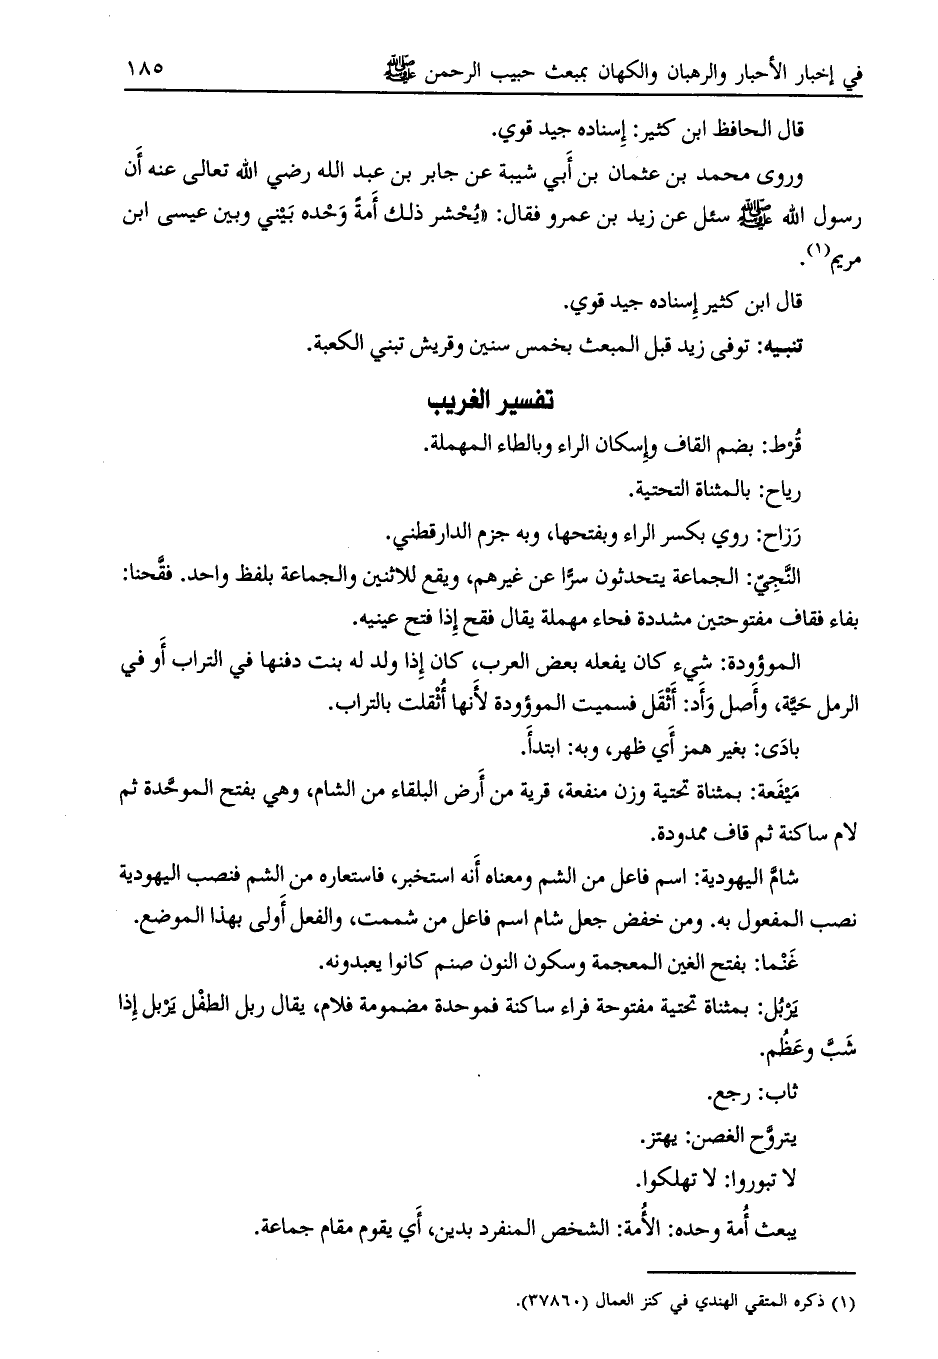 في إخبار الأحبار والرهبان والكهان بمبعث حبيب الرحمن ﷺ ١٨٥
قال الحافظ ابن كثير: إسناده جيد قوي.
وروى محمد بن عثمان بن أبي شيبة عن جابر بن عبد الله رضي الله تعالى عنه أن
رسول الله ﷺ سئل عن زيد بن عمرو فقال: «يُحْشر ذلك أمةً وَحْده بَيْني وبين عيسى ابن
مريم(١).
قال ابن كثير إسناده جيد قوي.
تنبيه: توفى زيد قبل المبعث بخمس سنين وقريش تبني الكعبة.
تفسير الغريب
قُرْط: بضم القاف وإسكان الراء وبالطاء المهملة.
رياح: بالمثناة التحتية.
رَزاح: روي بكسر الراء وبفتحها، وبه جزم الدارقطني.
النَّجِيّ: الجماعة يتحدثون سرًّا عن غيرهم، ويقع للاثنين والجماعة بلفظ واحد. فقَّحنا:
بفاء فقاف مفتوحتين مشددة فحاء مهملة يقال فقح إذا فتح عينيه.
الموؤودة: شيء كان يفعله بعض العرب، كان إذا ولد له بنت دفنها في التراب أو في
الرمل حَيَّة، وأصل وَأَد: أَثْقَل فسميت الموؤودة لأنها أُثْقلت بالتراب.
بادَى: بغير همز أي ظهر، وبه: ابتدأ.
مَيْفَعة: بمثناة تحتية وزن منفعة، قرية من أرض البلقاء من الشام، وهي بفتح الموحَّدة ثم
لام ساكنة ثم قاف ممدودة.
شامَّ اليهودية: اسم فاعل من الشم ومعناه أنه استخبر، فاستعاره من الشم فنصب اليهودية
نصب المفعول به. ومن خفض جعل شام اسم فاعل من شممت، والفعل أولى بهذا الموضع.
غَنْما: بفتح الغين المعجمة وسكون النون صنم كانوا يعبدونه.
يَرْبُل: بمثناة تحتية مفتوحة فراء ساكنة فموحدة مضمومة فلام، يقال ربل الطفْل يَرْبل إذا
شَبَّ وعَظُم.
ثاب: رجع.
يتروَّح الغصن: يهتز.
لا تبوروا: لا تهلكوا.
يبعث أُمة وحده: الأُمة: الشخص المنفرد بدين، أي يقوم مقام جماعة.
(١) ذكره المتقي الهندي في كنز العمال (٣٧٨٦٠).